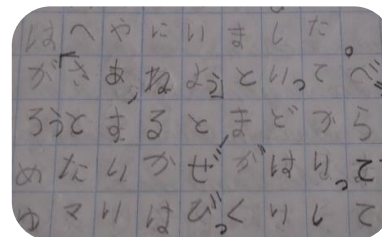 はへやにいました。
が「さあ、ねよう」といってベ
ろうとするとまどから
めたいかぜがはいって
はびっくりして